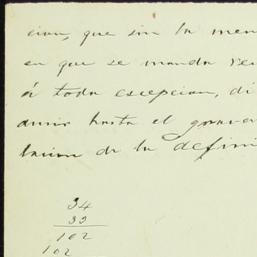 cion, que sin la men
en que se manda re
á toda escepcion, di
durir hasta el grava
lacion de la defini
34
33
102
102